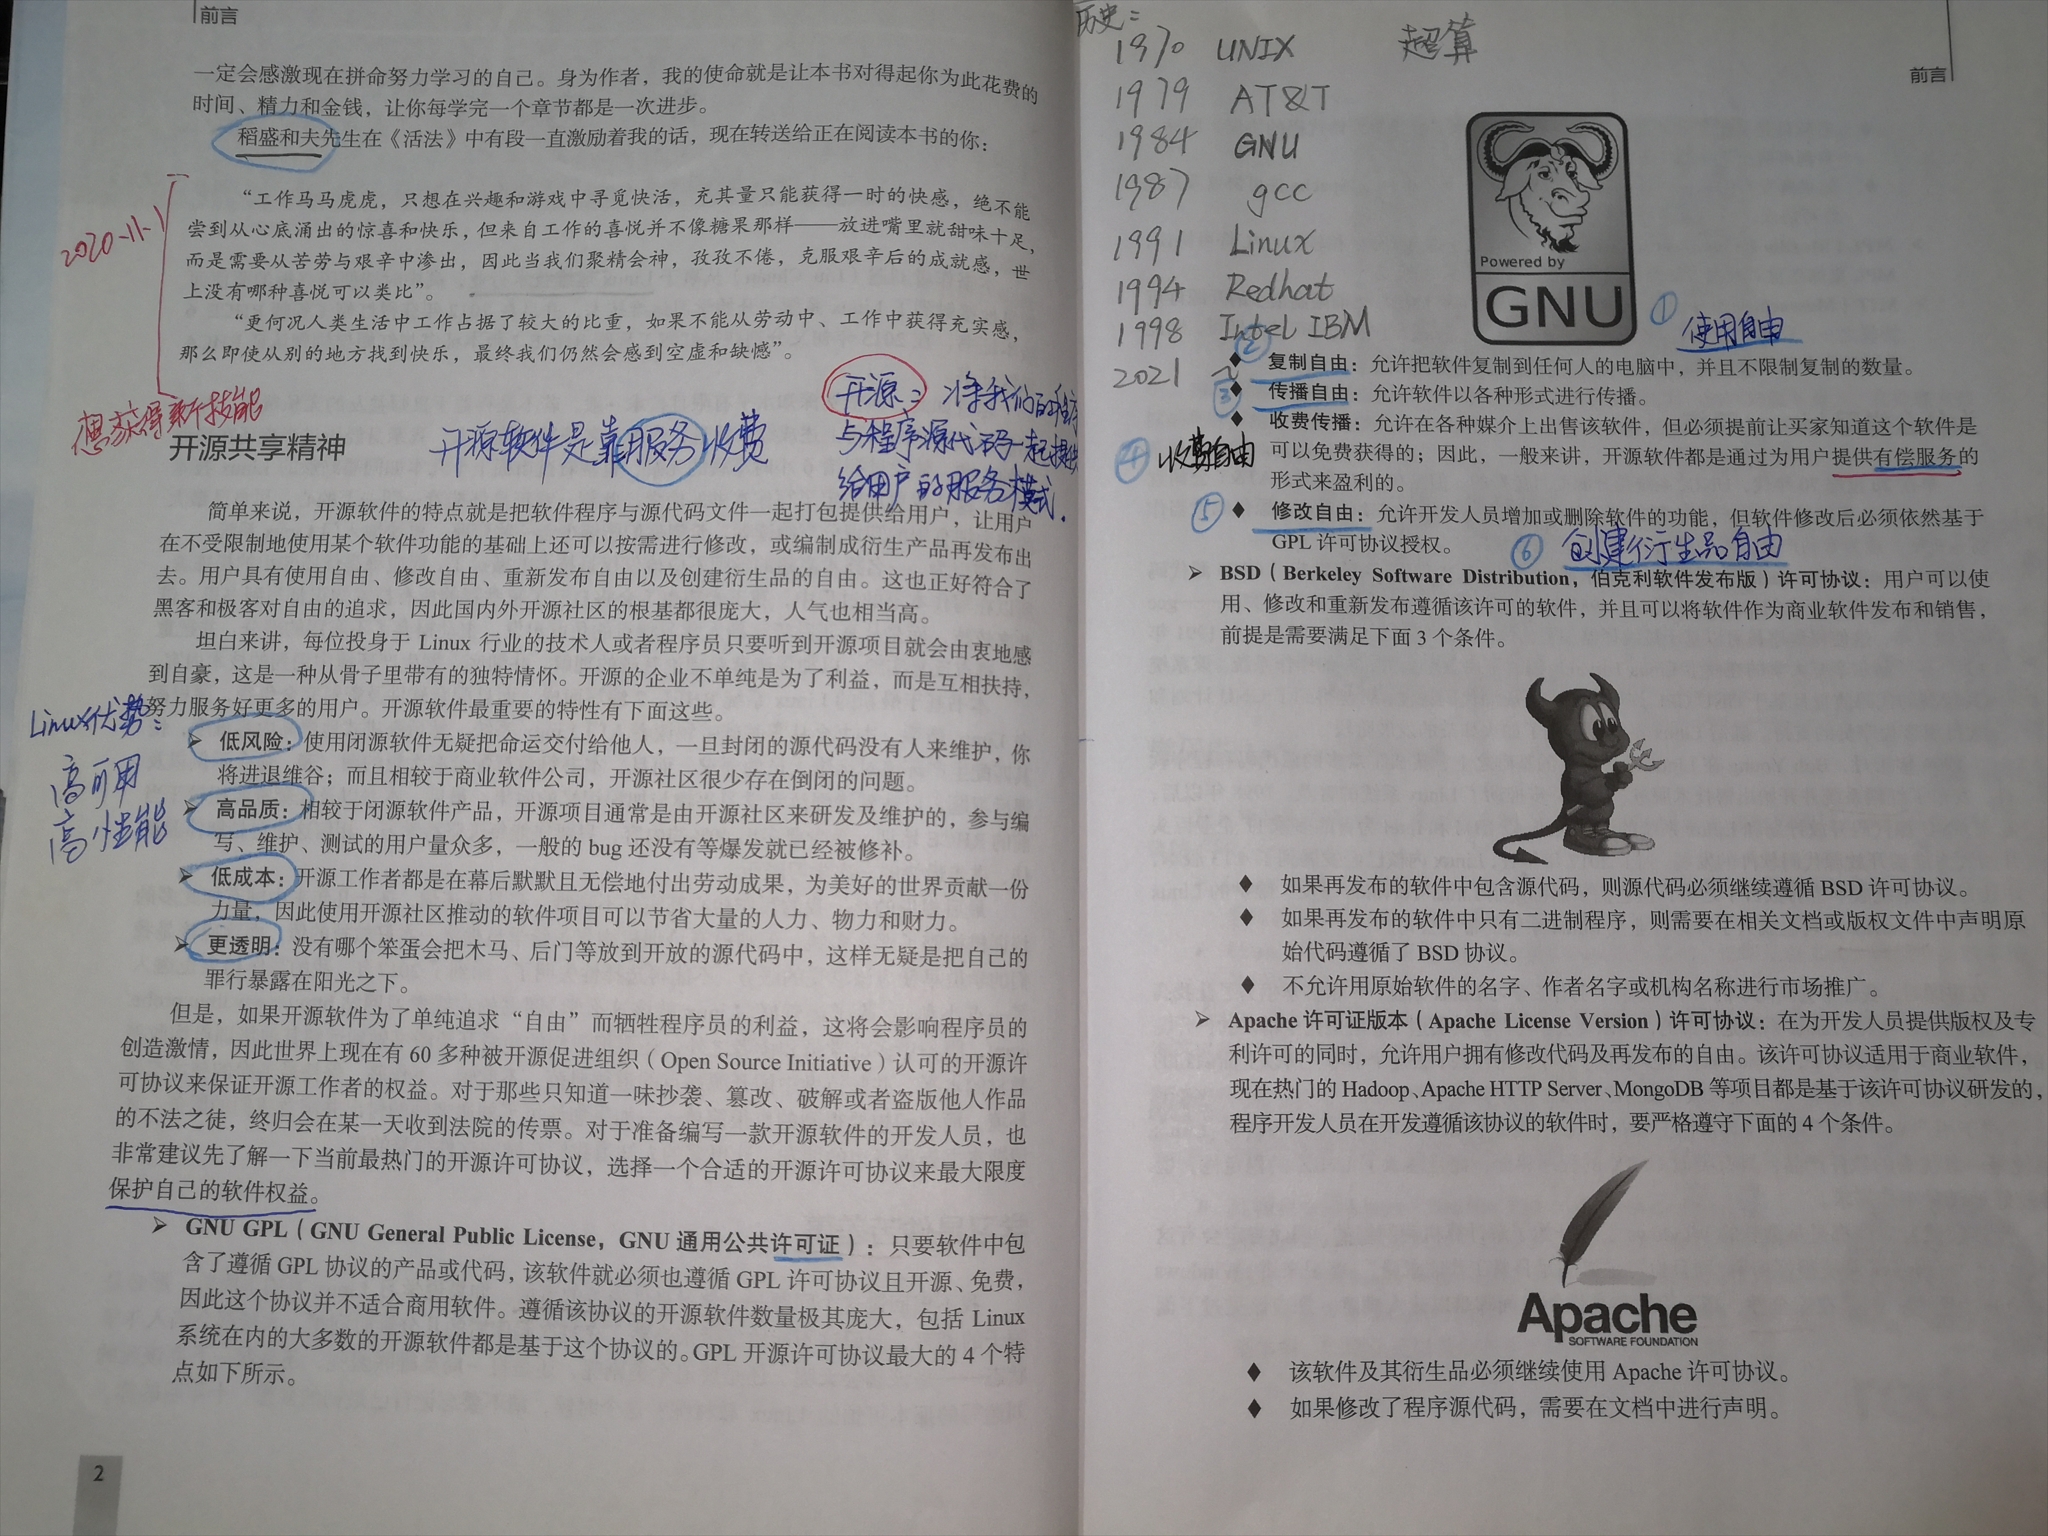 前言
一定会感激现在拼命努力学习的自己。身为作者，我的使命就是让本书对得起你为此花费的
时间、精力和金钱，让你每学完一个章节都是一次进步。
稻盛和夫先生在《活法》中有段一直激励着我的话，现在转送给正在阅读本书的你：
2020-11-1
“工作马马虎虎，只想在兴趣和游戏中寻觅快活，充其量只能获得一时的快感，绝不能
尝到从心底涌出的惊喜和快乐，但来自工作的喜悦并不像糖果那样——放进嘴里就甜味十足，
而是需要从苦劳与艰辛中渗出，因此当我们聚精会神，孜孜不倦，克服艰辛后的成就感，世
上没有哪种喜悦可以类比”。
“更何况人类生活中工作占据了较大的比重，如果不能从劳动中、工作中获得充实感，
那么即使从别的地方找到快乐，最终我们仍然会感到空虚和缺憾”。
想获得新技能
开源共享精神
开源软件是靠服务收费
开源：将我们的程序
与程序源代码一起提供
给用户的服务模式.
简单来说，开源软件的特点就是把软件程序与源代码文件一起打包提供给用户，让用户
在不受限制地使用某个软件功能的基础上还可以按需进行修改，或编制成衍生产品再发布出
去。用户具有使用自由、修改自由、重新发布自由以及创建衍生品的自由。这也正好符合了
黑客和极客对自由的追求，因此国内外开源社区的根基都很庞大，人气也相当高。
坦白来讲，每位投身于 Linux 行业的技术人或者程序员只要听到开源项目就会由衷地感
到自豪，这是一种从骨子里带有的独特情怀。开源的企业不单纯是为了利益，而是互相扶持，
努力服务好更多的用户。开源软件最重要的特性有下面这些。
Linux优势：
高可用
高性能
➢ 低风险：使用闭源软件无疑把命运交付给他人，一旦封闭的源代码没有人来维护，你
将进退维谷；而且相较于商业软件公司，开源社区很少存在倒闭的问题。
➢ 高品质：相较于闭源软件产品，开源项目通常是由开源社区来研发及维护的，参与编
写、维护、测试的用户量众多，一般的 bug 还没有等爆发就已经被修补。
➢ 低成本：开源工作者都是在幕后默默且无偿地付出劳动成果，为美好的世界贡献一份
力量，因此使用开源社区推动的软件项目可以节省大量的人力、物力和财力。
➢ 更透明：没有哪个笨蛋会把木马、后门等放到开放的源代码中，这样无疑是把自己的
罪行暴露在阳光之下。
但是，如果开源软件为了单纯追求“自由”而牺牲程序员的利益，这将会影响程序员的
创造激情，因此世界上现在有 60 多种被开源促进组织（Open Source Initiative）认可的开源许
可协议来保证开源工作者的权益。对于那些只知道一味抄袭、篡改、破解或者盗版他人作品
的不法之徒，终归会在某一天收到法院的传票。对于准备编写一款开源软件的开发人员，也
非常建议先了解一下当前最热门的开源许可协议，选择一个合适的开源许可协议来最大限度
保护自己的软件权益。
➢ GNU GPL（GNU General Public License，GNU 通用公共许可证）：只要软件中包
含了遵循 GPL 协议的产品或代码，该软件就必须也遵循 GPL 许可协议且开源、免费，
因此这个协议并不适合商用软件。遵循该协议的开源软件数量极其庞大，包括 Linux
系统在内的大多数的开源软件都是基于这个协议的。GPL 开源许可协议最大的 4 个特
点如下所示。
2
历史：
1970 UNIX
1979 AT&T
1984 GNU
1987 gcc
1991 Linux
1994 Redhat
1998 Intel IBM
2021 ~
超算
前言
Powered by
GNU
① 使用自由
② ◆ 复制自由：允许把软件复制到任何人的电脑中，并且不限制复制的数量。
③ ◆ 传播自由：允许软件以各种形式进行传播。
◆ 收费传播：允许在各种媒介上出售该软件，但必须提前让买家知道这个软件是
④ 收费自由
可以免费获得的；因此，一般来讲，开源软件都是通过为用户提供有偿服务的
形式来盈利的。
⑤ ◆ 修改自由：允许开发人员增加或删除软件的功能，但软件修改后必须依然基于
GPL 许可协议授权。
⑥ 创建衍生品自由
➢ BSD（Berkeley Software Distribution，伯克利软件发布版）许可协议：用户可以使
用、修改和重新发布遵循该许可的软件，并且可以将软件作为商业软件发布和销售，
前提是需要满足下面 3 个条件。
◆ 如果再发布的软件中包含源代码，则源代码必须继续遵循 BSD 许可协议。
◆ 如果再发布的软件中只有二进制程序，则需要在相关文档或版权文件中声明原
始代码遵循了 BSD 协议。
◆ 不允许用原始软件的名字、作者名字或机构名称进行市场推广。
➢ Apache 许可证版本（Apache License Version）许可协议：在为开发人员提供版权及专
利许可的同时，允许用户拥有修改代码及再发布的自由。该许可协议适用于商业软件，
现在热门的 Hadoop、Apache HTTP Server、MongoDB 等项目都是基于该许可协议研发的，
程序开发人员在开发遵循该协议的软件时，要严格遵守下面的 4 个条件。
Apache
SOFTWARE FOUNDATION
◆ 该软件及其衍生品必须继续使用 Apache 许可协议。
◆ 如果修改了程序源代码，需要在文档中进行声明。